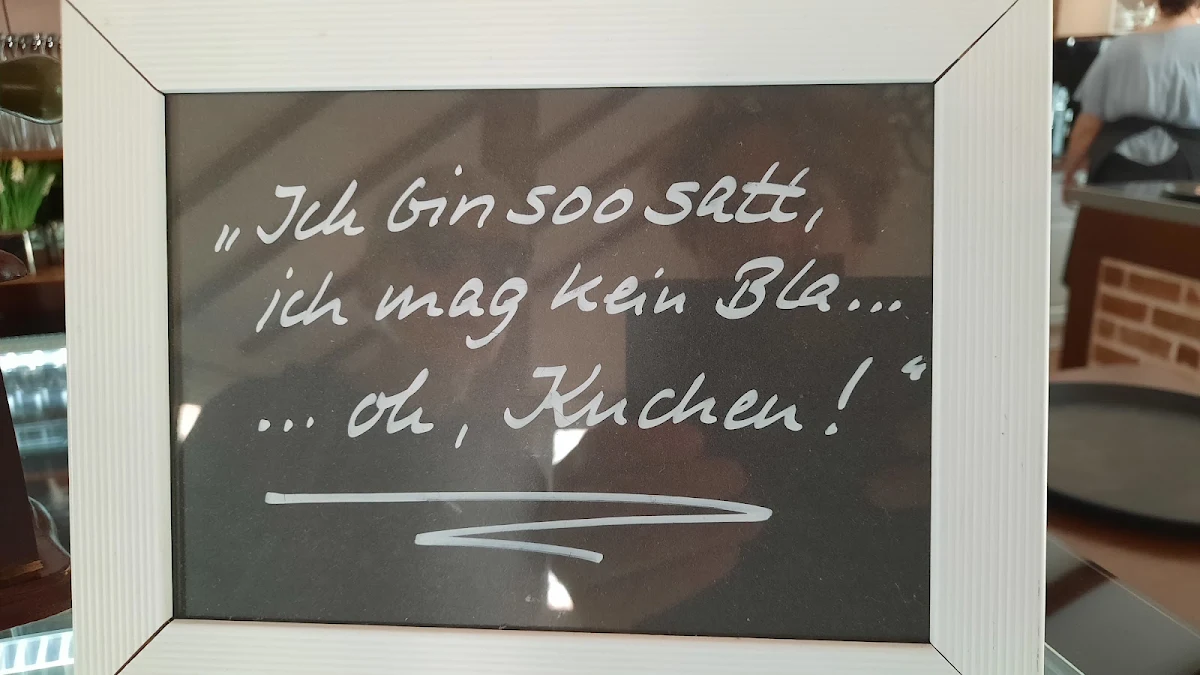 „Ich bin soo satt,
ich mag kein Bla...
... oh, Kuchen!“